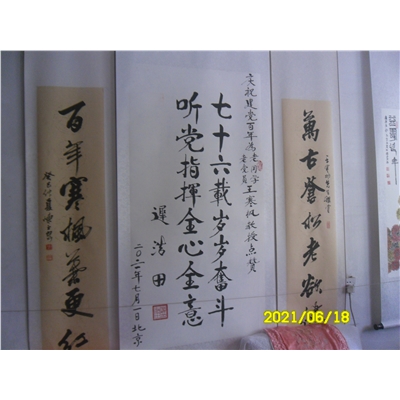 萬古蒼松老欲
庆祝建党百年为老同学
老党员王寒枫教授点赞
七十六載岁岁奋斗
听党指挥全心全意
遲浩田
二〇二一年七月一日北京
百年寒楓葉更红
2021/06/18